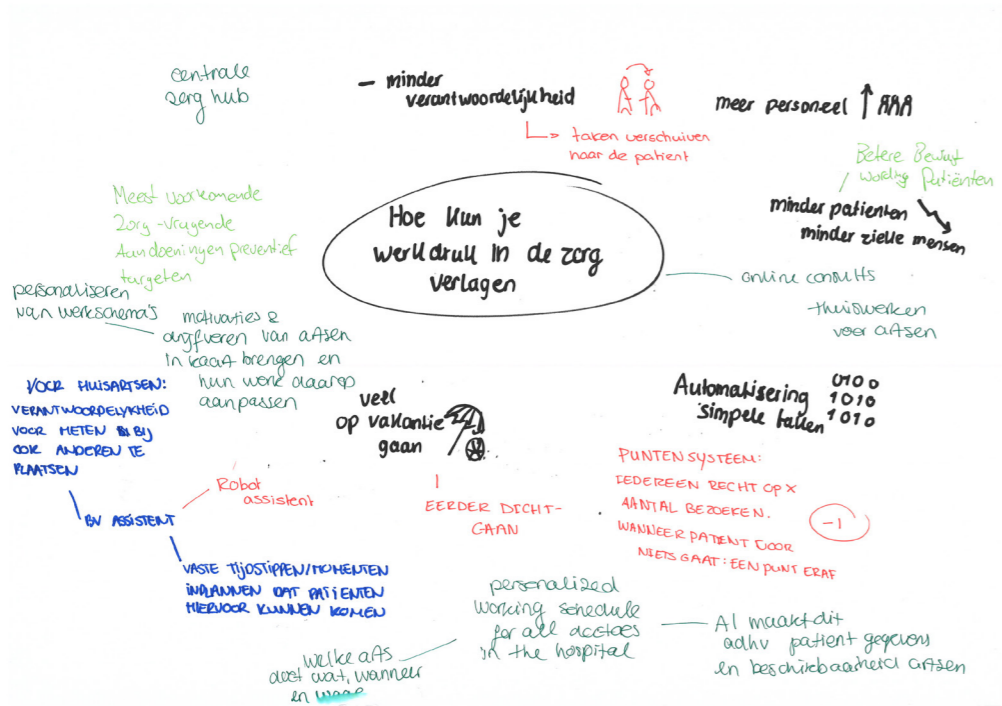 centrale
zorg hub
– minder
verantwoordelijkheid
↳ taken verschuiven
naar de patient
meer personeel ↑
Betere Bewust
wording Patiënten
minder patienten
minder zieke mensen
Meest voorkomende
Zorg-vragende
Aandoeningen preventief
targeten
Hoe kun je
werkdruk in de zorg
verlagen
online consults
thuiswerken
voor artsen
personaliseren
van werkschema's
motivaties &
drijfveren van artsen
in kaart brengen en
hun werk daarop
aanpassen
VOOR HUISARTSEN:
VERANTWOORDELYKHEID
VOOR METEN BIJ
OOK ANDEREN TE
PLAATSEN
BV ASSISTENT
Robot
assistent
VASTE TIJDSTIPPEN/MOMENTEN
INPLANNEN DAT PATIENTEN
HIERVOOR KUNNEN KOMEN
veel
op vakantie
gaan
EERDER DICHT-
GAAN
Automatisering
simpele taken
0100
1010
1010
PUNTENSYSTEEM:
IEDEREEN RECHT OP X
AANTAL BEZOEKEN.
WANNEER PATIENT VOOR
NIETS GAAT: EEN PUNT ERAF
-1
personalized
working schedule
for all doctoes
in the hospital
welke arts
doet wat, wanneer
en waar
AI maakt dit
adhv patient gegevens
en beschikbaarheid artsen